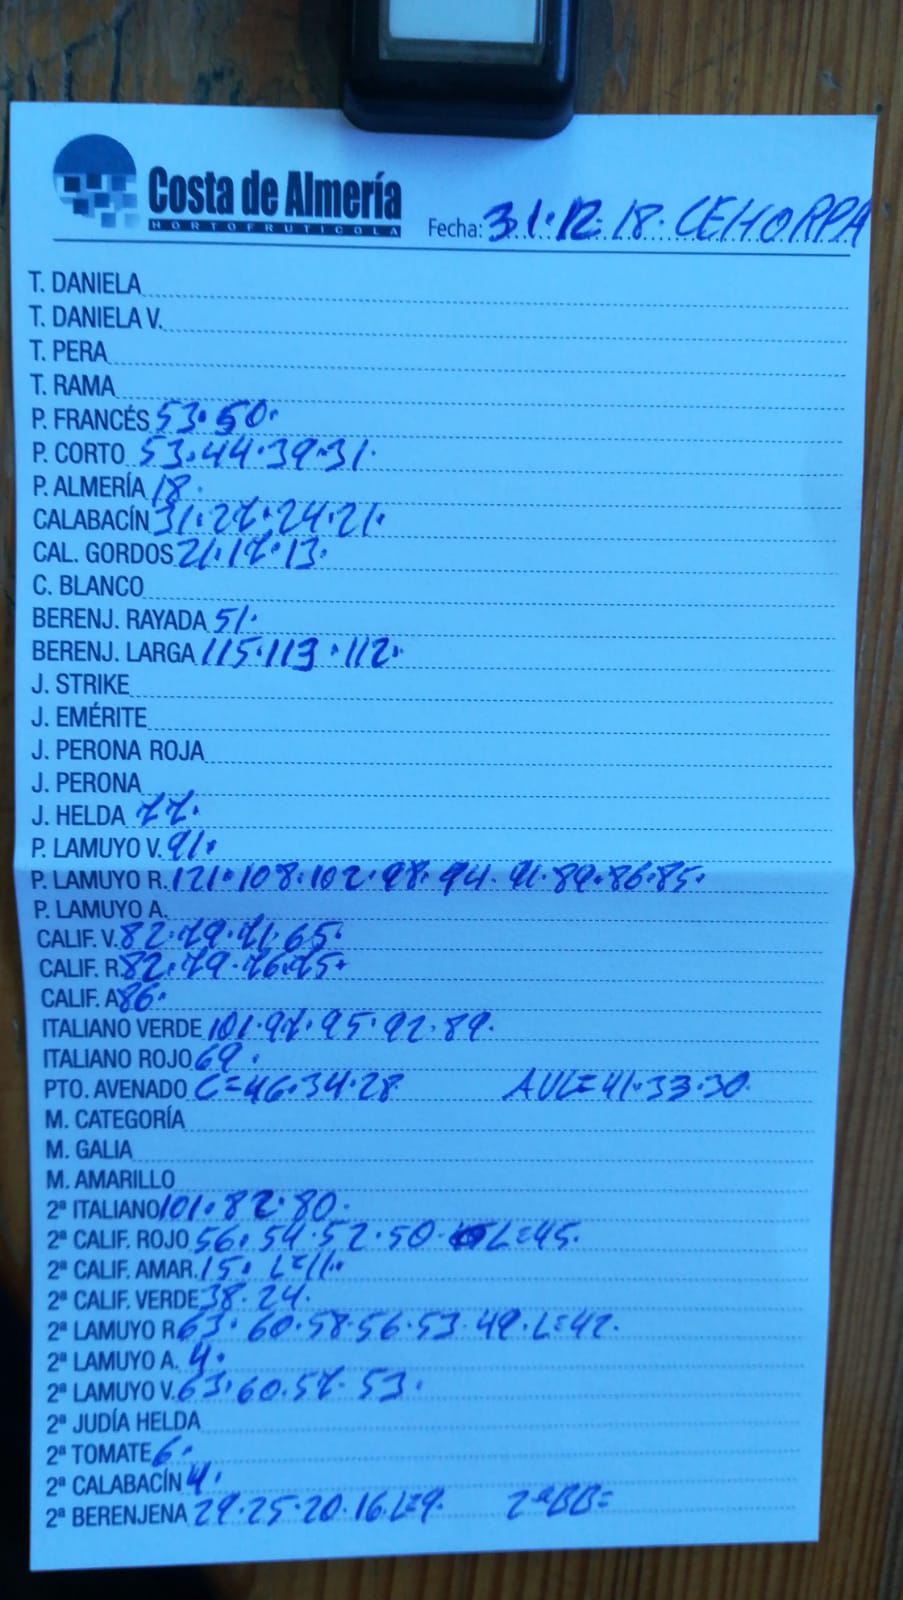 Costa de Almería
HORTOFRUTICOLA
Fecha: 31·12·18· CEHORPA
T. DANIELA
T. DANIELA V.
T. PERA
T. RAMA
P. FRANCÉS 53·50·
P. CORTO 53·44·39·31·
P. ALMERÍA 18·
CALABACÍN 31·27·24·21·
CAL. GORDOS 21·17·13·
C. BLANCO
BERENJ. RAYADA 51·
BERENJ. LARGA 115·113·112·
J. STRIKE
J. EMÉRITE
J. PERONA ROJA
J. PERONA
J. HELDA 77·
P. LAMUYO V. 91·
P. LAMUYO R. 121·108·102·98·94·91·89·86·85·
P. LAMUYO A.
CALIF. V. 82·79·71·65·
CALIF. R. 82·79·76·75·
CALIF. A 86·
ITALIANO VERDE 101·97·95·92·89·
ITALIANO ROJO 69·
PTO. AVENADO C=46·34·28 AVL=41·33·30·
M. CATEGORÍA
M. GALIA
M. AMARILLO
2ª ITALIANO 101·82·80·
2ª CALIF. ROJO 56·54·52·50· L=45·
2ª CALIF. AMAR. 15· L=11·
2ª CALIF. VERDE 38·24·
2ª LAMUYO R. 63·60·58·56·53·49·L=42·
2ª LAMUYO A. 4·
2ª LAMUYO V. 63·60·57·53·
2ª JUDÍA HELDA
2ª TOMATE 6·
2ª CALABACÍN 4·
2ª BERENJENA 29·25·20·16·L=9· 2ªBB=